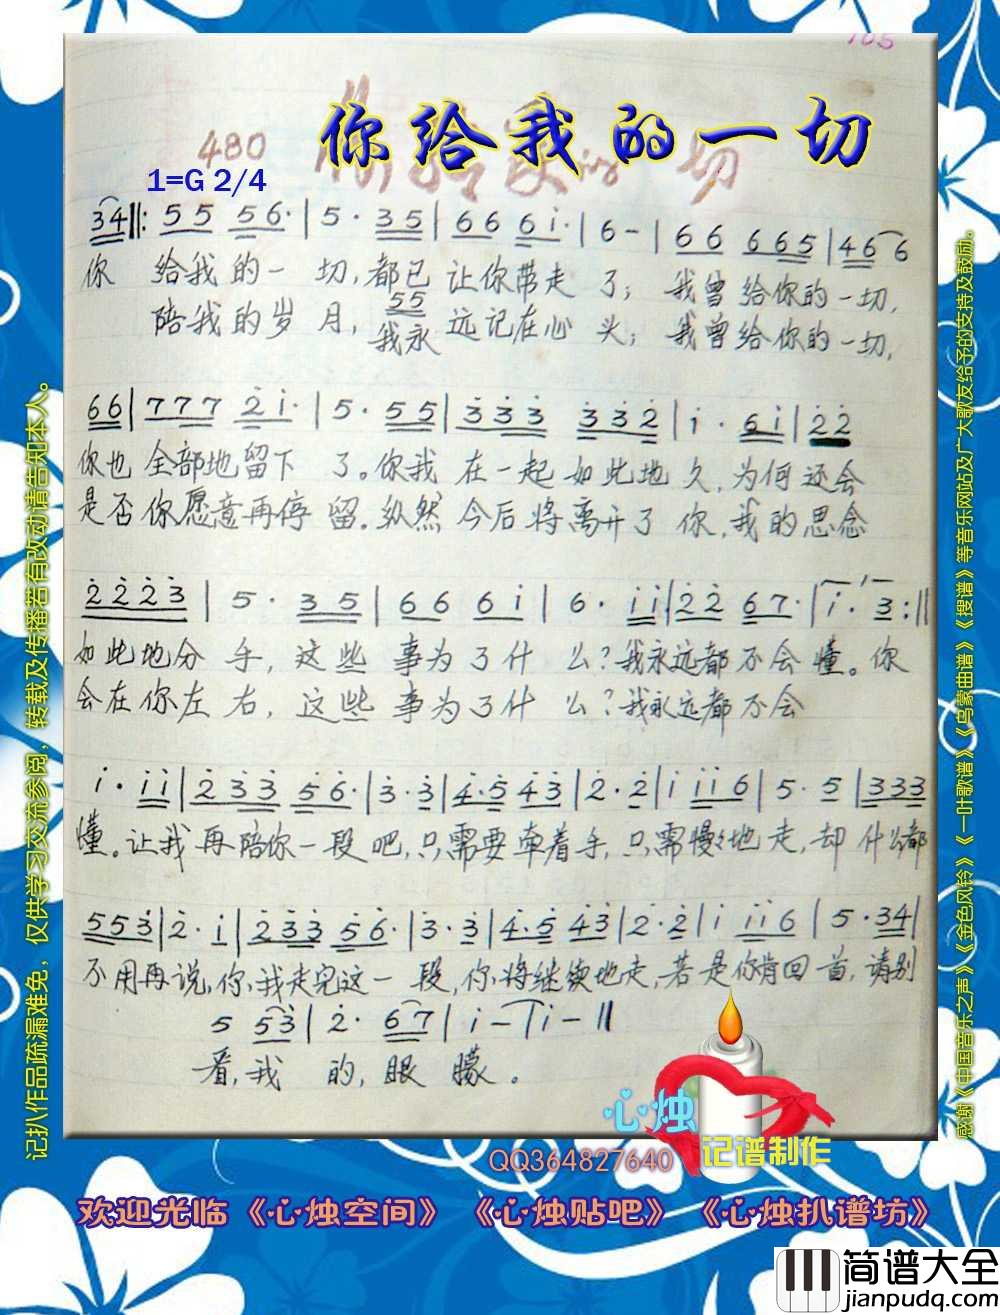 105
你给我的一切
480
1=G 2/4
34‖: 55 56· | 5· 35 | 66 6i· | 6 - | 66 665 | 46 6
你 给我的一 切,都已 让你带走 了; 我曾给你的一切,
55
陪我的岁 月, 我永 远记在心 头; 我曾给你的一切,
66 | 777 2i· | 5· 55 | 333 332 | i· 6i | 22
你也 全部地留下 了。你我 在一起如此地 久,为何还会
是否 你愿意再停 留。纵然 今后将离开了 你,我的思念
2223 | 5· 35 | 66 6i | 6· ii | 22 67· | i· 3 :‖
如此地分 手, 这些 事为了什 么?我永远都不会 懂。你
会在你左 右, 这些 事为了什 么?我永远都不会
i· ii | 233 56· | 3·3 | 4·5 43 | 2·2 | i ii6 | 5· 5 | 333
懂。让我 再陪你一段吧,只需要牵着手,只需慢々地走,却 什么都
553 | 2· i | 233 56· | 3·3 | 4·5 43 | 2·2 | i ii6 | 5· 34 |
不用再说,你、我走完这一段,你将继续地走,若是你肯回首,请别
5 53 | 2· 67 | i - | i - ‖
看,我 的,眼 朦。
心烛
记谱制作
QQ364827640
欢迎光临《心烛空间》 《心烛贴吧》 《心烛扒谱坊》
记扒作品疏漏难免,仅供学习交流参阅,转载及传播若有改动请告知本人。
感谢《中国音乐之声》《金色风铃》《一叶歌谱》《乌蒙曲谱》《搜谱》等音乐网站及广大歌友给予的支持及鼓励。
简谱大全
jianpudq.com